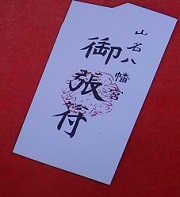 山名八幡宮
御張符